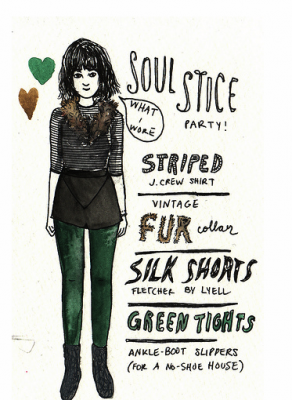 SOUL STICE
PARTY!
WHAT I WORE
STRIPED
J.CREW SHIRT
VINTAGE
FUR collar
SILK SHORTS
FLETCHER BY LYELL
GREEN TIGHTS
ANKLE-BOOT SLIPPERS
(FOR A NO-SHOE HOUSE)